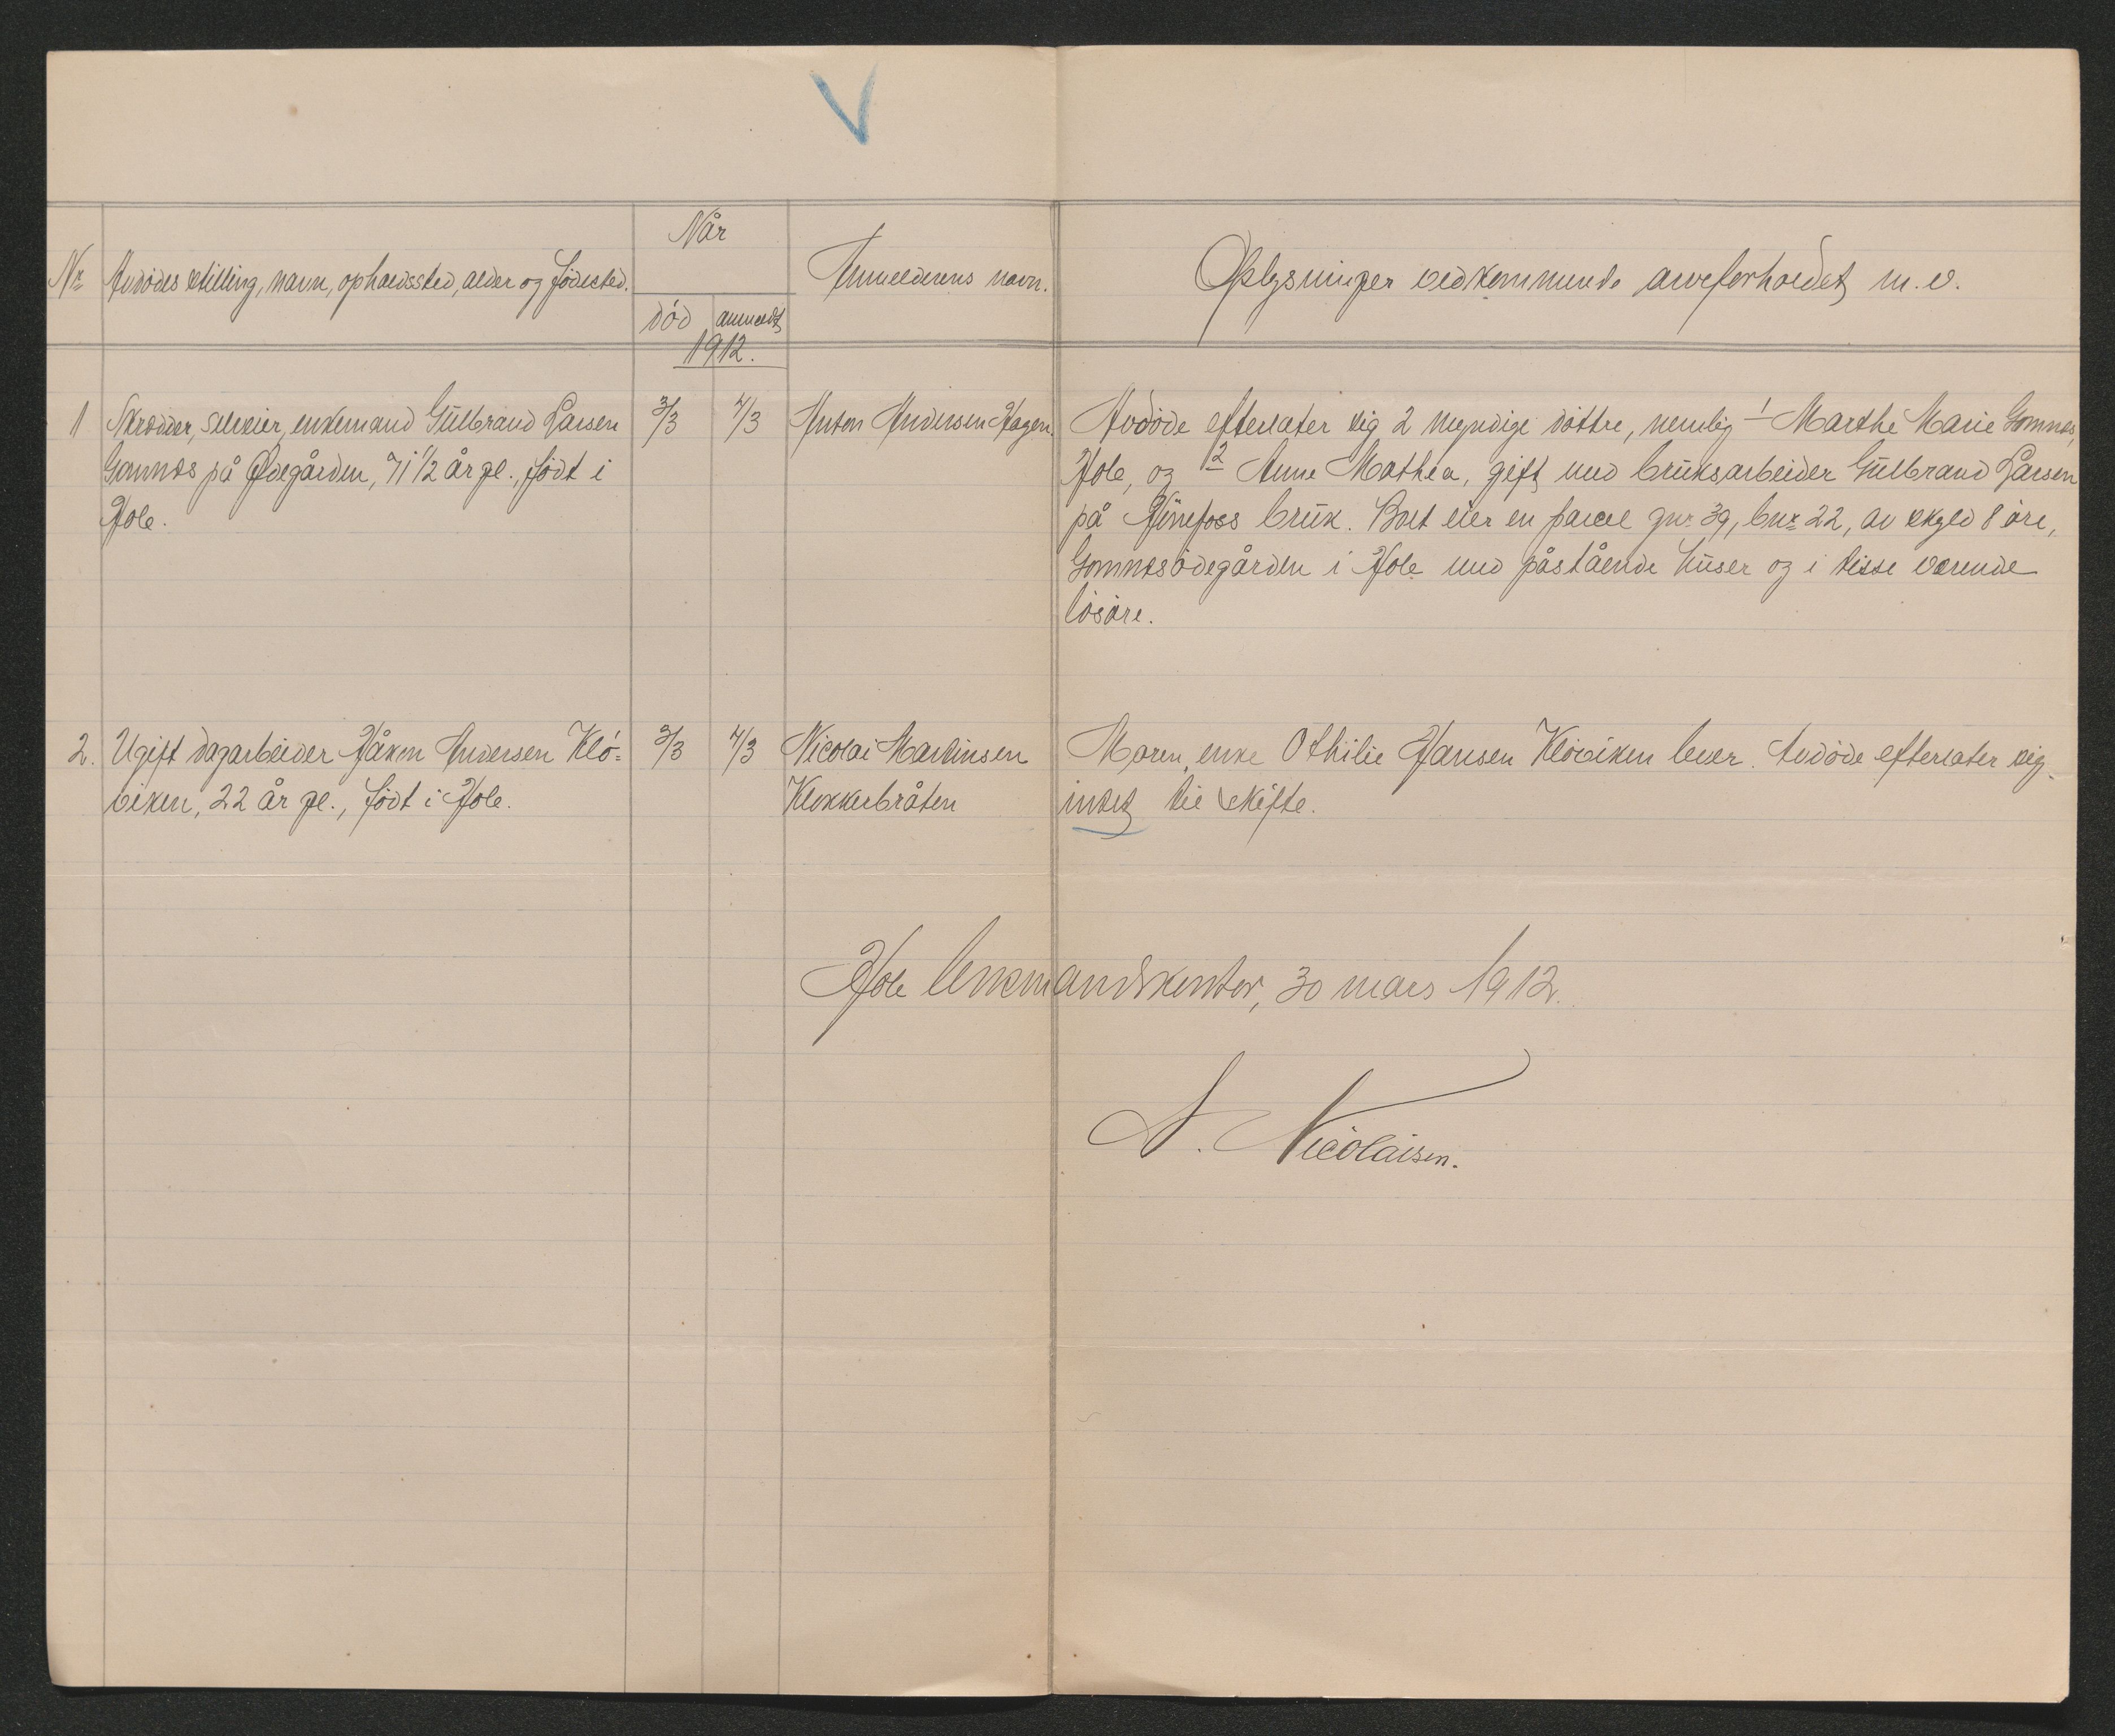 Nr. Avdödes stilling, navn, opholdssted, alder og födested.
Når
död anmeldt
1912.
Anmelderens navn.
Oplysninger vedkommende arveforholdet m.v.
1 Skrædder, selveier, enkemand Gulbrand Larsen
Gomnæs på Ødegården, 71 1/2 år gl., födt i
Hole.
3/3 4/3 Anton Andersen Hagen.
Avdöde efterlater sig 2 myndige döttre, nemlig 1 Marthe Marie Gomnæs,
Hole, og 2 Anne Mathea, gift med bruksarbeider Gulbrand Larsen
på Hönefoss bruk. Boet eier en parcel gnr. 39, bnr. 22, av skyld 8 öre,
Gomnæsödegården i Hole med påstående huser og i disse værende
lösöre.
2. Ugift dagarbeider Håkon Andersen Klö-
viken, 22 år gl., födt i Hole.
3/3 4/3 Nicolai Martinsen
Klokkerbråten
Moren, enke Othilie Hansen Klöviken lever. Avdöde efterlater sig
intet til skifte.
Hole lensmandskontor, 30 mars 1912.
N. Nicolaisen.